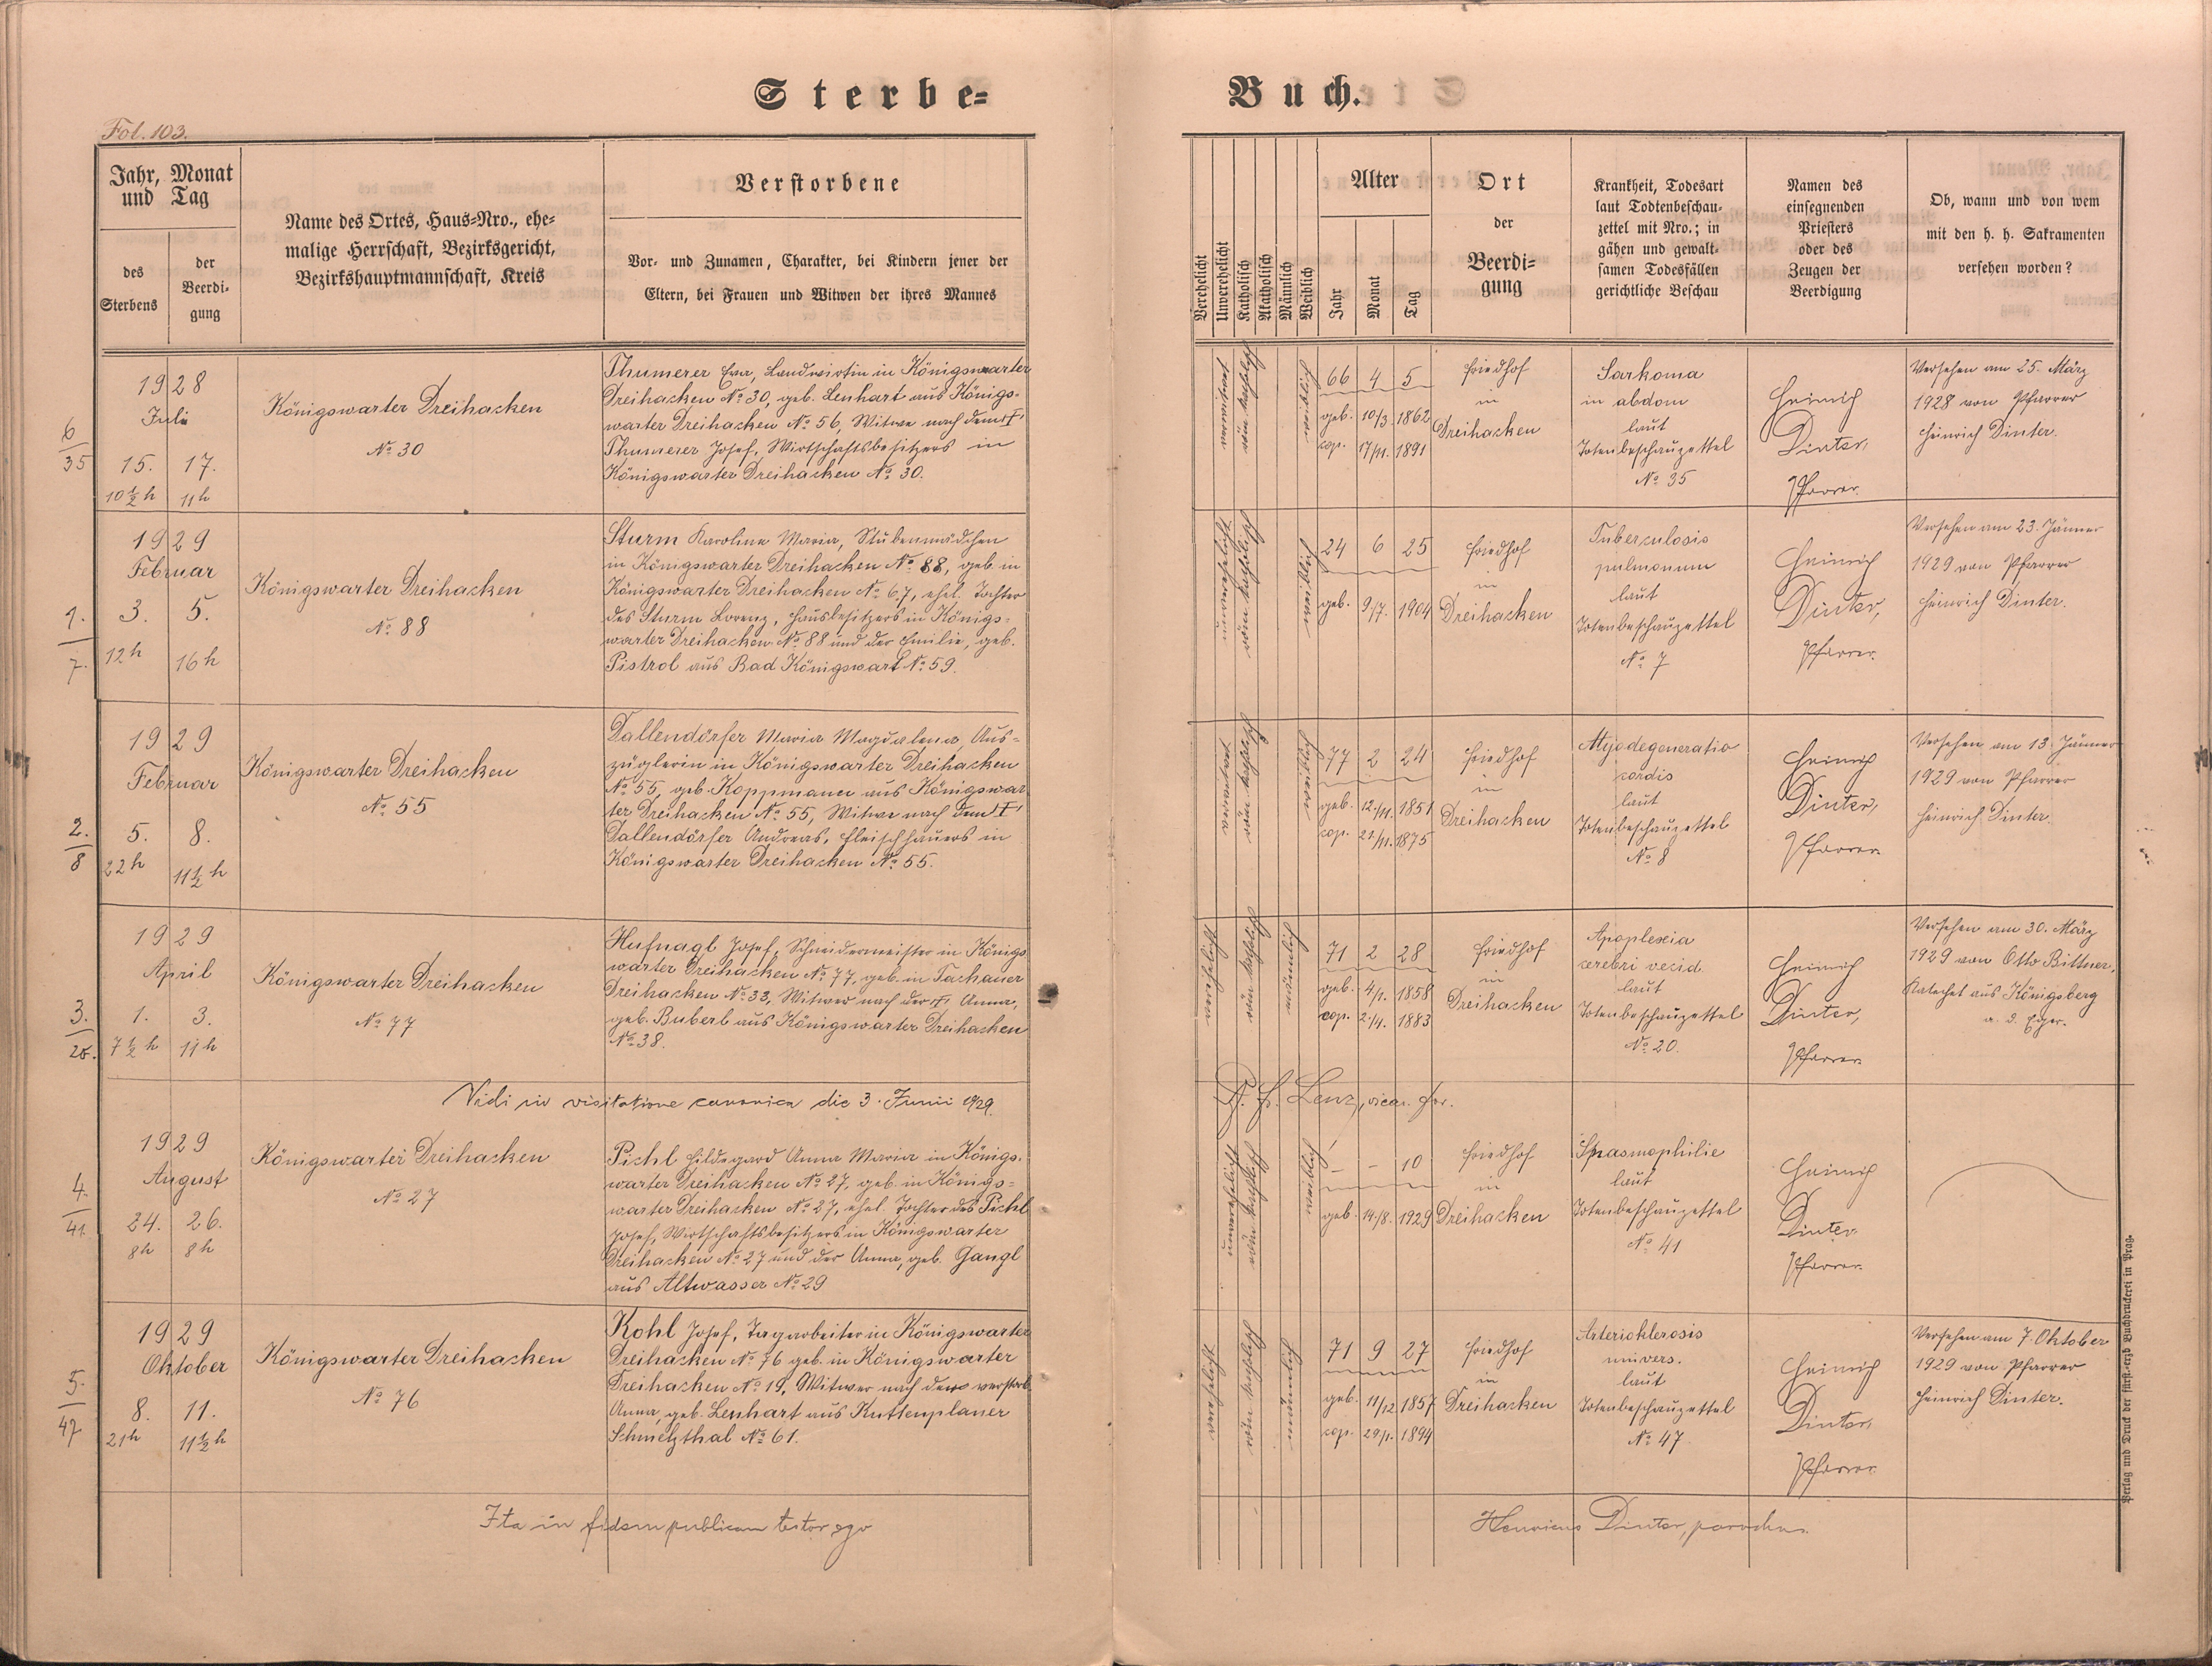 Sterbe=
Buch.
Fol. 103.
Jahr, Monat
und Tag
des
Sterbens
der
Beerdi-
gung
Name des Ortes, Haus=Nro., ehe=
malige Herrschaft, Bezirksgericht,
Bezirkshauptmannschaft, Kreis
Verstorbene
Vor- und Zunamen, Charakter, bei Kindern jener der
Eltern, bei Frauen und Witwen der ihres Mannes
Verehelicht
Unverehelicht
Katholisch
Akatholisch
Männlich
Weiblich
Alter
Jahr
Monat
Tag
Ort
der
Beerdi=
gung
Krankheit, Todesart
laut Todtenbeschau-
zettel mit Nro.; in
gähen und gewalt-
samen Todesfällen
gerichtliche Beschau
Namen des
einsegnenden
Priesters
oder des
Zeugen der
Beerdigung
Ob, wann und von wem
mit den h. h. Sakramenten
versehen worden?
6
35
1928
Juli
15. 17.
10½ h 11 h
Königswarter Dreihacken
No 30
Thumerer Eva, Landwirtin in Königswarter
Dreihacken No 30, geb. Lenhart aus Königs-
warter Dreihacken No 56, Witwe nach dem †
Thumerer Josef, Wirtschaftsbesitzers in
Königswarter Dreihacken No 30.
verwitwet
röm. katholisch
weiblich
66 4 5
geb. 10/3. 1862
cop. 17/11. 1891
Friedhof
in
Dreihacken
Sarkoma
in abdom
laut
Totenbeschauzettel
No 35
Heinrich
Dinter,
Pfarrer.
Versehen am 25. März
1928 von Pfarrer
Heinrich Dinter.
1.
7.
1929
Februar
3. 5.
12 h 16 h
Königswarter Dreihacken
No 88
Sturm Karolina Maria, Stubenmädchen
in Königswarter Dreihacken No 88, geb. in
Königswarter Dreihacken No 67, ehel. Tochter
des Sturm Lorenz, Hausbesitzers in Königs-
warter Dreihacken No 88 und der Emilie, geb.
Pistrol aus Bad Königswart No 59.
unverehelicht
röm. katholisch
weiblich
24 6 25
geb. 9/7. 1904
Friedhof
in
Dreihacken
Tuberculosis
pulmonum
laut
Totenbeschauzettel
No 7
Heinrich
Dinter,
Pfarrer.
Versehen am 23. Jänner
1929 von Pfarrer
Heinrich Dinter.
2.
8
1929
Februar
5. 8.
22 h 11½ h
Königswarter Dreihacken
No 55
Dallendörfer Maria Magdalena, Aus-
züglerin in Königswarter Dreihacken
No 55, geb. Koppmann aus Königswar
ter Dreihacken No 55, Witwe nach dem †
Dallendörfer Andreas, Fleischhauers in
Königswarter Dreihacken No 55.
verwitwet
röm. katholisch
weiblich
77 2 24
geb. 12./11. 1851
cop. 22/11. 1875
Friedhof
in
Dreihacken
Myodegeneratio
cordis
laut
Totenbeschauzettel
No 8
Heinrich
Dinter,
Pfarrer.
Versehen am 13. Jänner
1929 von Pfarrer
Heinrich Dinter.
3.
20.
1929
April
1. 3.
7½ h 11 h
Königswarter Dreihacken
No 77
Hufnagl Josef, Schneidermeister in Königs
warter Dreihacken No 77, geb. in Tachauer
Dreihacken No 33, Witwer nach der † Anna,
geb. Buberl aus Königswarter Dreihacken
No 38.
verehelicht
röm. katholisch
männlich
71 2 28
geb. 4/1. 1858
cop. 2/4. 1883
Friedhof
in
Dreihacken
Apoplexia
cerebri recid.
laut
Totenbeschauzettel
No 20.
Heinrich
Dinter,
Pfarrer
Versehen am 30. März
1929 von Otto Bittner,
Katechet aus Königsberg
a. d. Eger.
Vidi in visitatione canonica die 3. Junii 1929.
Lenz, vicar. for.
4.
41.
1929
August
24. 26.
8 h 8 h
Königswarter Dreihacken
No 27
Pichl Hildegard Anna Maria in Königs-
warter Dreihacken No 27, geb. in Königs-
warter Dreihacken No 27, ehel. Tochter des Pichl
Josef, Wirtschaftsbesitzers in Königswarter
Dreihacken No 27 und der Anna, geb. Gangl
aus Altwasser No 29
unverehelicht
röm. katholisch
weiblich
- - 10
geb. 14./8. 1929
Friedhof
in
Dreihacken
Spasmophilie
laut
Totenbeschauzettel
No 41
Heinrich
Dinter
Pfarrer.
5.
47
1929
Oktober
8. 11.
21 h 11½ h
Königswarter Dreihacken
No 76
Kohl Josef, Tagarbeiter in Königswarter
Dreihacken No 76 geb. in Königswarter
Dreihacken No 19, Witwer nach der verstorb.
Anna, geb. Lenhart aus Kuttenplaner
Schmelzthal No 61.
verehelicht
röm. katholisch
männlich
71 9 27
geb. 11/12 1857
cop. 29/1. 1894
Friedhof
in
Dreihacken
Arteriosklerosis
univers.
laut
Totenbeschauzettel
No 47
Heinrich
Dinter
Pfarrer
Versehen am 7. Oktober
1929 von Pfarrer
Heinrich Dinter.
Ita in fidem publicam testor ego
Henricus Dinter, parochus.
Verlag und Druck der fürst.-erzb Buchdruckerei in Prag.